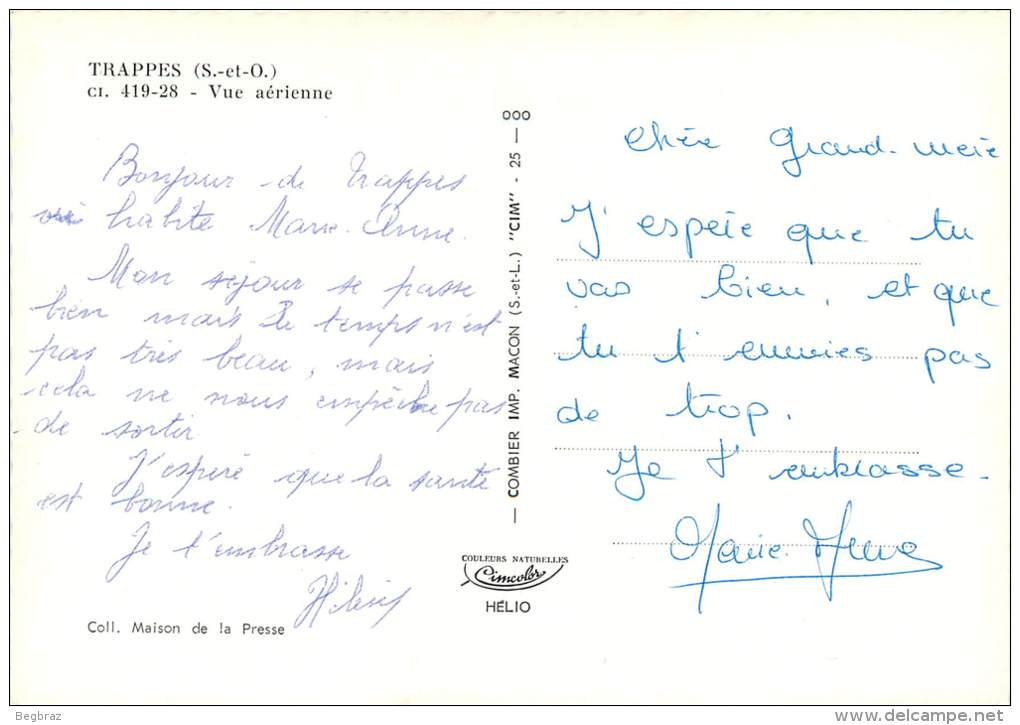 TRAPPES (S.-et-O.)
CI. 419-28 - Vue aérienne
Bonjour de Trappes
habite Marie-Anne.
Mon séjour se passe
bien mais le temps n'est
pas très beau, mais
cela ne nous empêche pas
de sortir.
J'espère que la santé
est bonne.
Je t'embrasse
Coll. Maison de la Presse
— COMBIER IMP. MACON (S.-et-L.) "CIM" - 25 — 000
COULEURS NATURELLES
Cimcolor
HÉLIO
Chère Grand-mère
J'espère que tu
vas bien, et que
tu t'ennuies pas
de trop.
Je t'embrasse.
Marie-Anne
Begbraz
www.delcampe.net